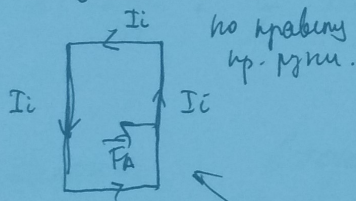 Ii
по правилу
пр. руки.
Ii
Ii
FA